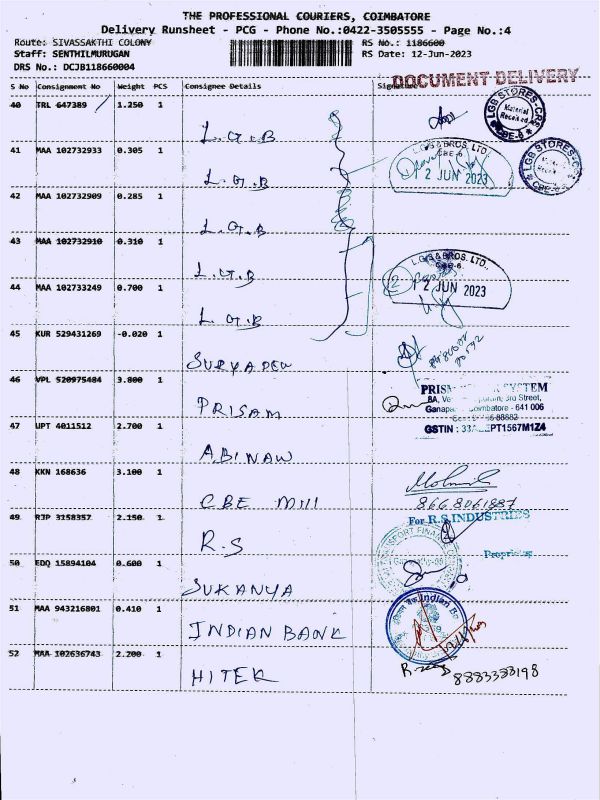 THE PROFESSIONAL COURIERS, COIMBATORE
Delivery Runsheet - PCG - Phone No.:0422-3505555 - Page No.:4
Route: SIVASSAKTHI COLONY RS No.: 1186600
Staff: SENTHILMURUGAN RS Date: 12-Jun-2023
DRS No.: DCJB118660004
DOCUMENT DELIVERY
S No Consignment No Weight PCS Consignee Details Signature
40 TRL 647389 1.250 1 L.G.B
LGB STORES-CRS
Material
Received
CBE-6
41 MAA 102732933 0.305 1 L.G.B
L.G.B & BROS. LTD.
CBE-6.
12 JUN 2023
LGB STORES-CRS
CBE-6
42 MAA 102732909 0.285 1 L.G.B
43 MAA 102732910 0.310 1 L.G.B
L.G.B & BROS. LTD.
CBE-6.
12 JUN 2023
44 MAA 102733249 0.700 1 L.G.B
45 KUR 529431269 -0.020 1 SURYADEV
46 VPL 520975484 3.800 1 PRISAM
PRISM SYSTEM
8A, 3rd Street,
Ganapa Coimbatore - 641 006
GSTIN : 33A EPT1567M1Z4
47 UPT 4011512 2.700 1 ABINAW
48 KKN 168636 3.100 1 CBE Mill
8668061887
49 RJP 3158357 2.150 1 R.S
For R.S INDUSTRIES
Proprietor
50 EDQ 15894104 0.600 1 SUKANYA
51 MAA 943216801 0.410 1 INDIAN BANK
Indian
52 MAA 102636743 2.200 1 HITEK
8883333198